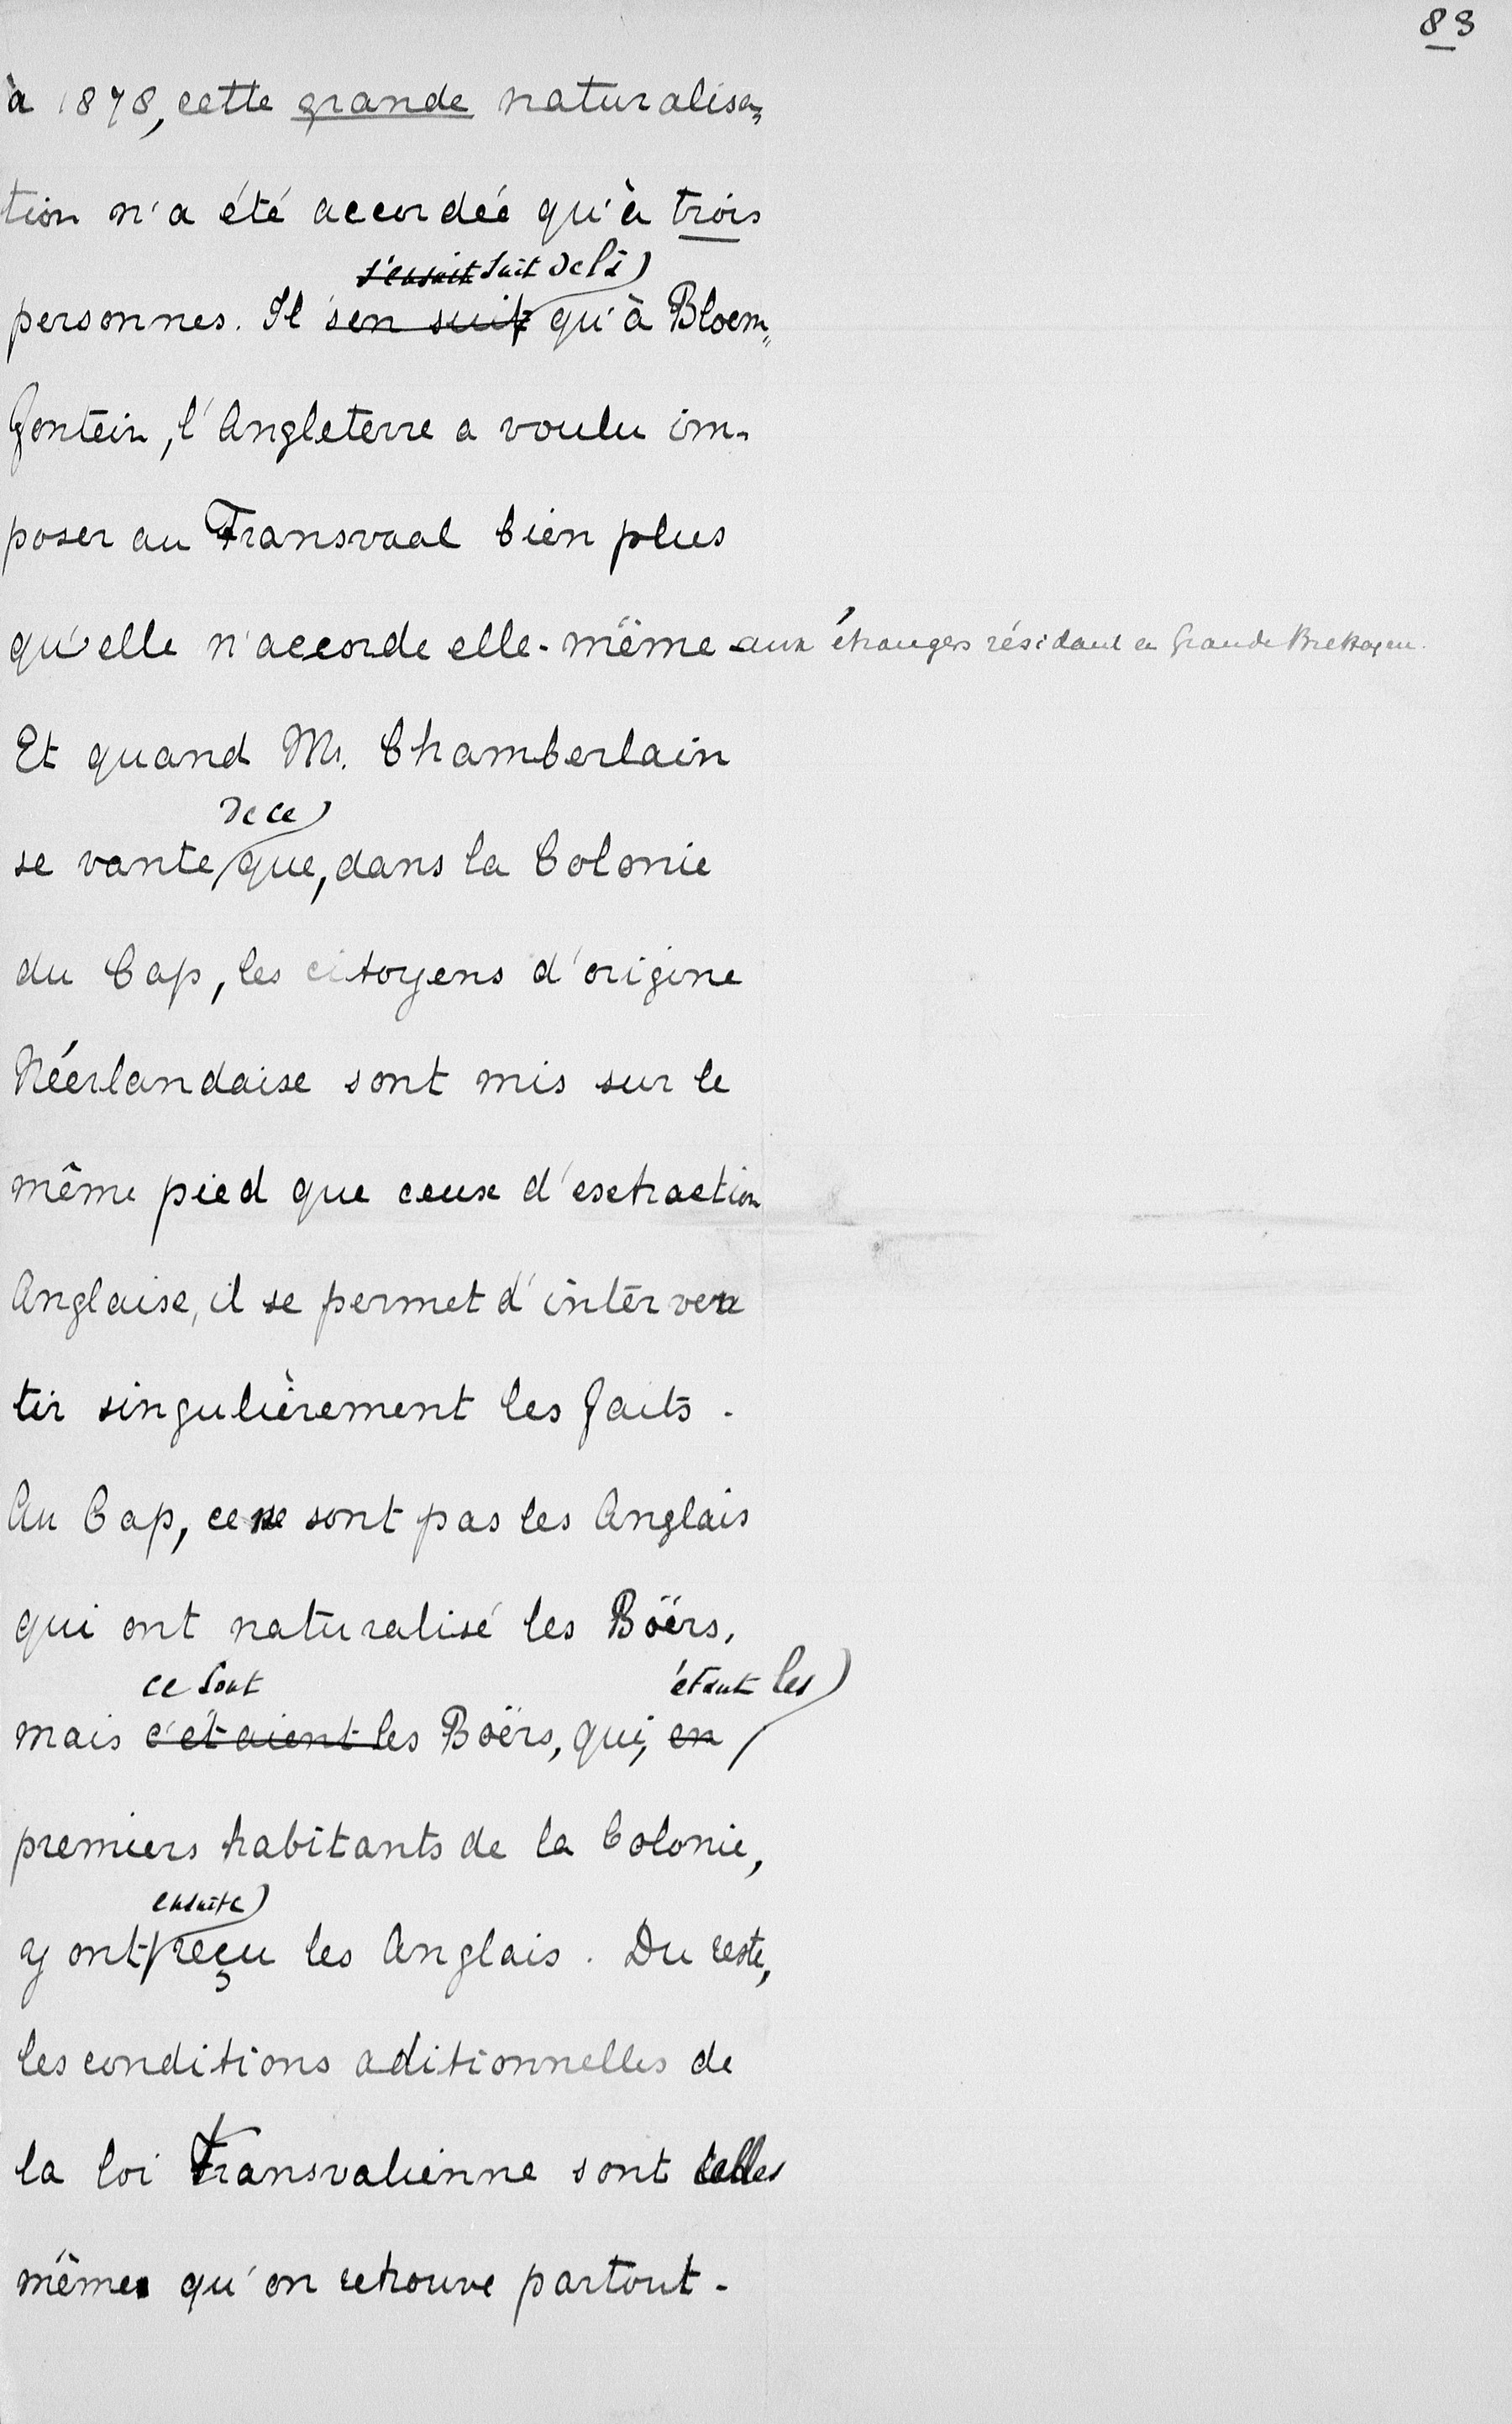 83
à 1878, cette grande naturalisa-
tion n'a été accordée qu'à trois
s'ensuit suit de là
personnes. Il s'en suit qu'à Bloem-
fontein, l'Angleterre a voulu im-
poser au Transvaal bien plus
qu'elle n'accorde elle-même aux étrangers résidant en Grande Bretagne.
Et quand Mr. Chamberlain
de ce
se vante que, dans la Colonie
du Cap, les citoyens d'origine
Néerlandaise sont mis sur le
même pied que ceux d'extraction
Anglaise, il se permet d'interver
tir singulièrement les faits.
Au Cap, ce ne sont pas les Anglais
qui ont naturalisé les Boërs,
ce sont étant les
mais c'étaient les Boërs, qui, en
premiers habitants de la Colonie,
ensuite
y ont reçu les Anglais. Du reste,
les conditions aditionnelles de
la loi transvalienne sont celles
mêmes qu'on retrouve partout.